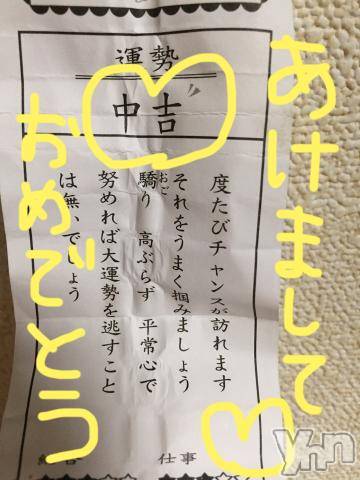 あけまして
おめでとう
運勢
中吉
度たびチャンスが訪れます
それをうまく掴みましょう
驕り 高ぶらず 平常心で
おご
努めれば大運勢を逃すこと
は無いでしょう
仕事